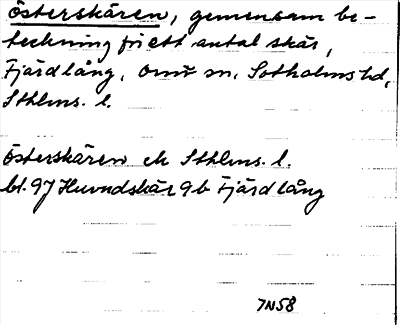 Österskären, gemensam be-
teckning för ett antal skär,
Fjärdlång, Ornö sn, Sotholms hd,
Sthlms. l.
Österskären ek Sthlms. l.
bl. 97 Huvudskär 9b Fjärdlång
7N58